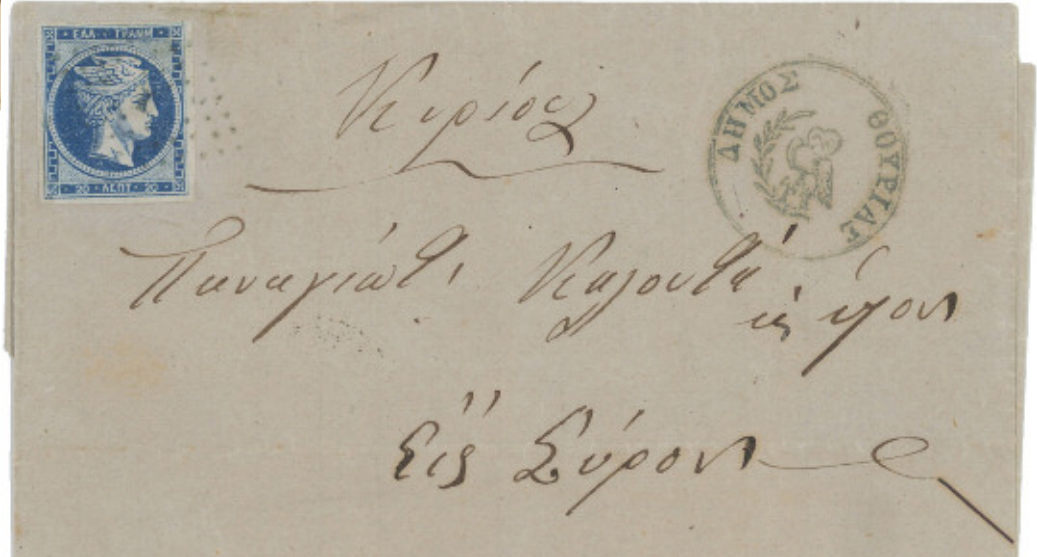 ΕΛΛ ΓΡΑΜΜ
20 ΛΕΠΤ 20
ΔΗΜΟΣ ΘΟΥΡΙΑΣ
Κυρίον
Παναγιώτ. Καλουτά
Εἰς Σύρον